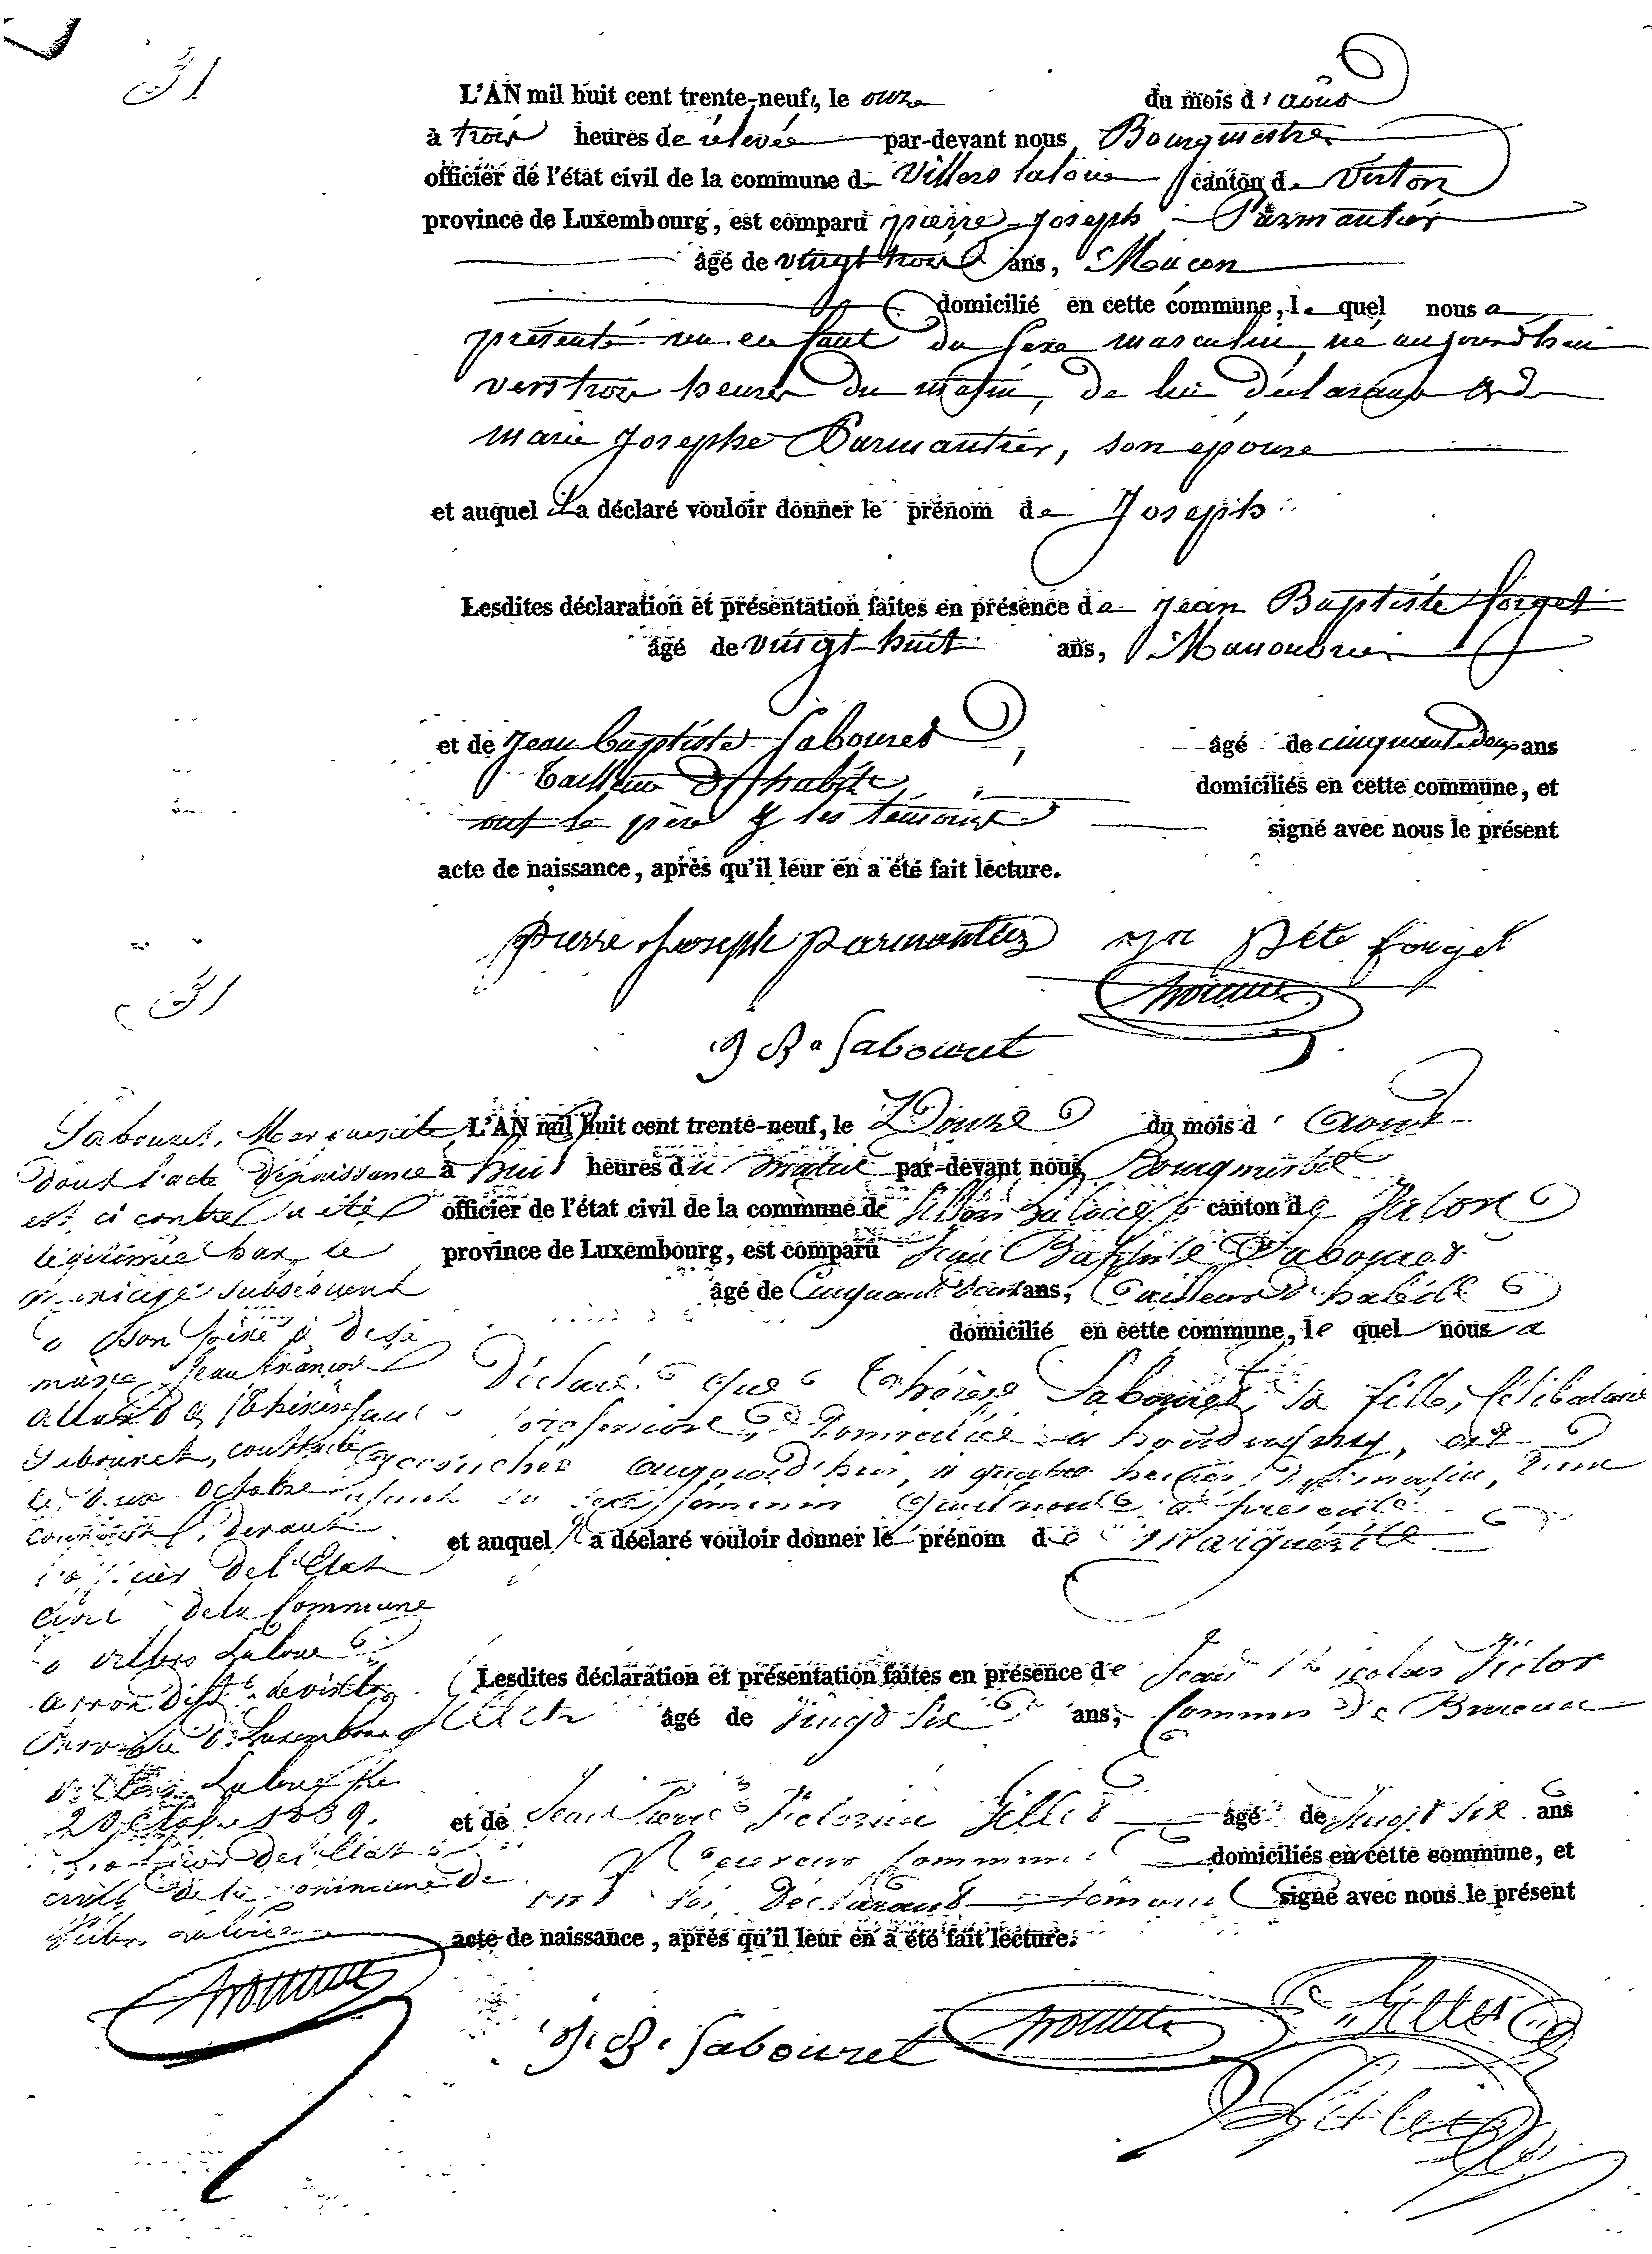 31
L'AN mil huit cent trente-neuf, le onze du mois d'août
à trois heures de relevée par-devant nous Bourgmestre
officier de l'état civil de la commune de Villers laloue canton de Virton
province de Luxembourg, est comparu pierre Joseph Parmantier
âgé de vingt trois ans, Maçon
domicilié en cette commune, le quel nous a
présenté un enfant du sexe masculin, né aujourdhui
vers trois heures du matin, de lui déclarant et de
marie Josephe Parmantier, son epouse
et auquel il a déclaré vouloir donner le prénom de Joseph
Lesdites déclaration et présentation faites en présence de Jean Baptiste forget
âgé de vingt-huit ans, Manoubrier
et de Jean baptiste Sabouret âgé de cinquante deux ans
tailleur d'habits domiciliés en cette commune, et
ont le père et les témoins signé avec nous le présent
acte de naissance, après qu'il leur en a été fait lecture.
pierre Joseph parmantier Bte forget
J B Sabouret
31
L'AN mil huit cent trente-neuf, le Douze du mois d'Aout
à huit heures du matin par-devant nous Bourgmestre
officier de l'état civil de la commune de Villers laloue canton de Virton
province de Luxembourg, est comparu Jean Baptiste Sabouret
âgé de Cinquante deux ans, tailleur d'habits
domicilié en cette commune, le quel nous a
Déclaré que Thérèse Sabouret, sa fille, Célibataire
profession domiciliée a houdrigny, est
accouchée aujourd'hui, à quatre heures du matin, d'un
enfant du sexe féminin qu'il nous a présenté
et auquel il a déclaré vouloir donner le prénom de Marguerite
Lesdites déclaration et présentation faites en présence de Jean Nicolas Victor
âgé de Vingt six ans, Commis de Bureau
et de Jean Pierre Victorin Gilles âgé de Vingt six ans
Receveur Communal domiciliés en cette commune, et
ont les Déclarant témoins signé avec nous le présent
acte de naissance, après qu'il leur en a été fait lecture.
J. B. Sabouret Gilles
Sabouret, Marguerite
dont l'acte de naissance
est ci contre a été
légitimée par le
mariage subséquent
de son père et de sa
mère Jean françois
Allard et Thérèse
Sabouret, contracté
le deux octobre
courant, devant
l'officier de l'Etat
Civil de la Commune
de villers Laloue
arrondist de virton
Province de Luxembourg
Villers Laloue le
2 Octobre 1839.
L'officier de l'Etat
civil de la commune de
Villers laloue